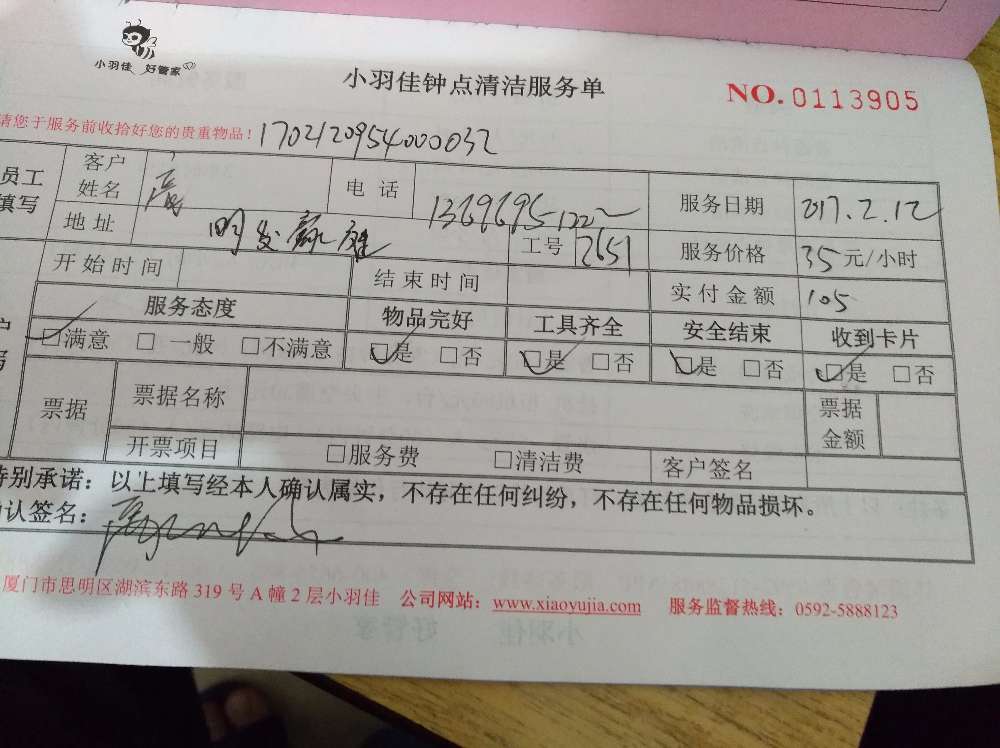 小羽佳 好管家
小羽佳钟点清洁服务单
NO.0113905
请您于服务前收拾好您的贵重物品! 1702120954000032
员工填写 客户姓名 高 电话 服务日期 2017.2.12
地址 明发赢庭 工号 2651 服务价格 35元/小时
开始时间 结束时间 实付金额 105
服务态度 物品完好 工具齐全 安全结束 收到卡片
☑满意 □一般 □不满意 ☑是 □否 ☑是 □否 ☑是 □否 ☑是 □否
票据 票据名称 票据金额
开票项目 □服务费 □清洁费 客户签名
特别承诺：以上填写经本人确认属实，不存在任何纠纷，不存在任何物品损坏。
确认签名：
厦门市思明区湖滨东路 319 号 A 幢 2 层小羽佳 公司网站：www.xiaoyujia.com 服务监督热线：0592-5888123